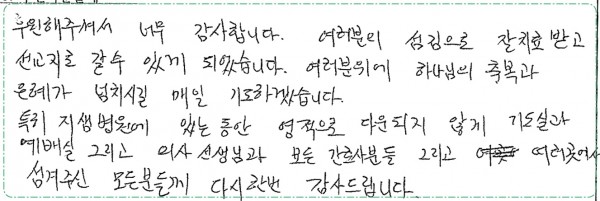 후원해주셔서 너무 감사합니다. 여러분의 섬김으로 잘치료 받고
선교지로 갈수 있게 되었습니다. 여러분위에 하나님의 축복과
은혜가 넘치시길 매일 기도하겠습니다.
특히 지샘병원에 있는동안 영적으로 다운되지 않게 기도실과
예배실 그리고 의사선생님과 모든 간호사분들 그리고 여러곳에서
섬겨주신 모든분들께 다시한번 감사드립니다